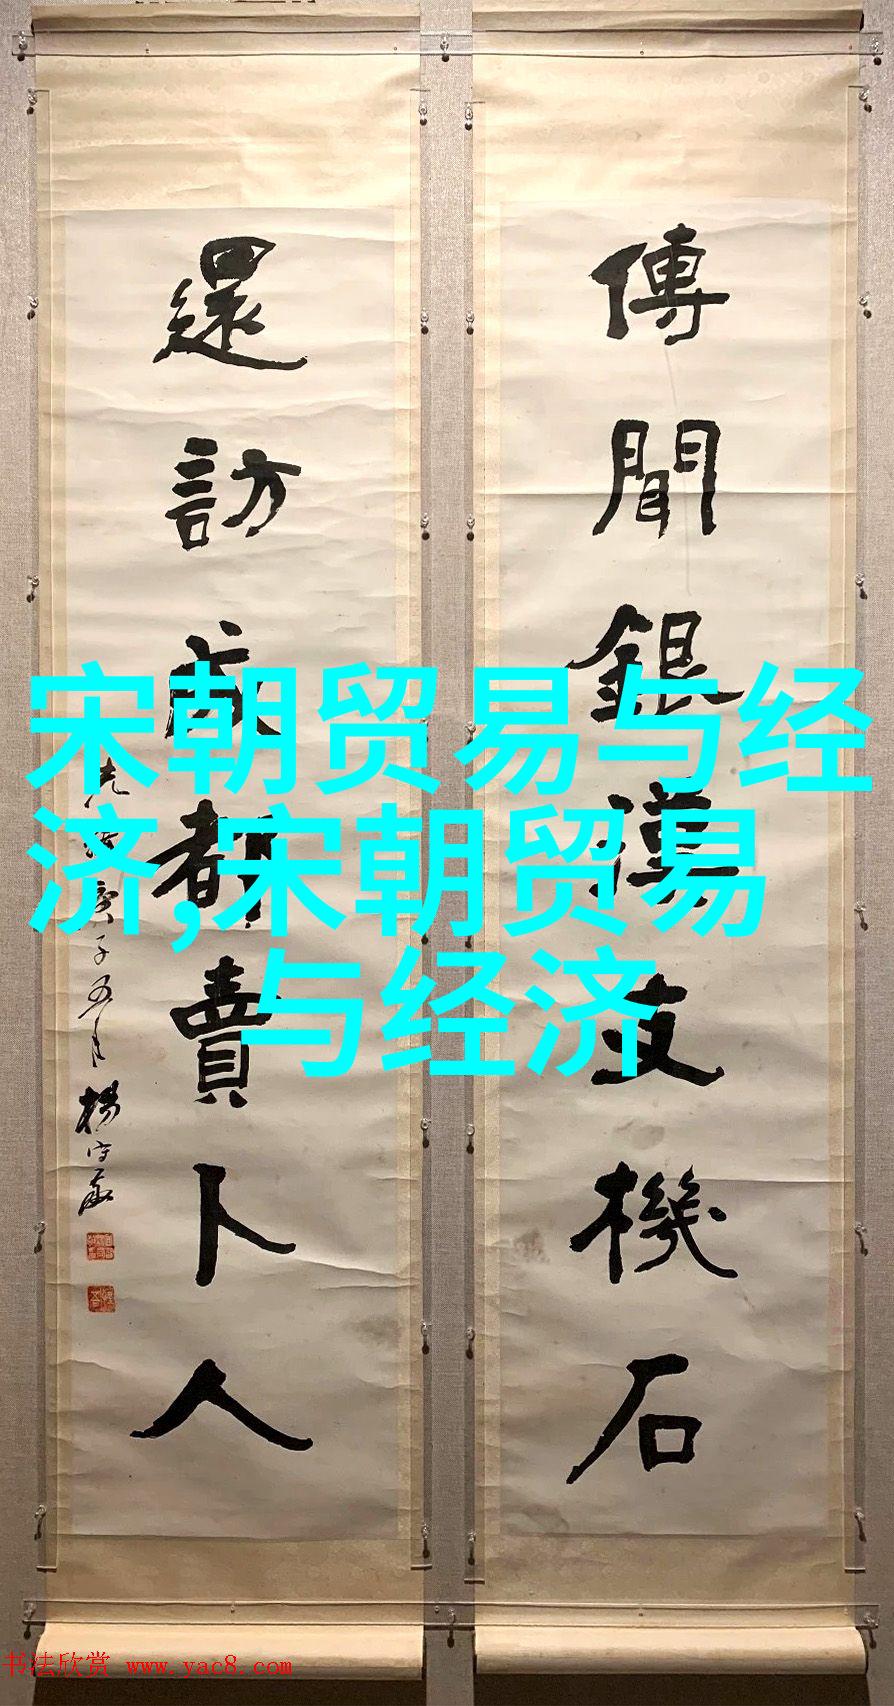 傳聞銀漢支機石
還訪成都賣卜人
庚子五月
楊守敬
宋朝贸易与经
济,宋朝贸易
与经济
书法欣赏 www.yac8.com